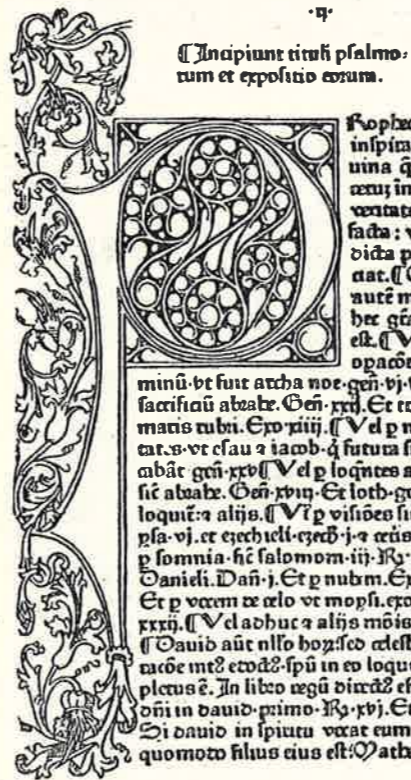 ·q·
¶ Incipiunt tituli psalmo⸗
rum et expositio eorum.
Prophec
inspira
uina q̄
rerum in
veritat
facta : v
dicta p
ciat. ¶
autē m
hec gr̄a
est. ¶ V
opacōe
minū· vt fuit archa noe· gen̄· vj·
sacrificiū abrahe. Gen̄· xxij. Et
maris rubri. Exo· xiiij. ¶ Vel p
tates· vt esau ⁊ iacob· q̄ futura
cabāt gen̄· xxv ¶ Vel p loqn̄tes a
sic̄ abrahe. Gen̄· xviij· Et loth· ge
loquit̄· ⁊ alijs. ¶ Vl̄ p visiōes
ysa· vj. et ezechieli· ezecħ· j· ⁊
p somnia· sic̄ salomoni· iij· Rꝝ·
Danieli. Dan̄· j. Et p nubem. Ex
Et p vocem de celo vt moysi. exo
xxxij. ¶ Vel adhuc ⁊ alijs mōis
¶ Dauid aūt nllo hoꝝ: sed celest
spū in eo loqu
pletus ē. In libro regū
dn̄i in dauid· primo· Rꝝ· xvj. Et
Si dauid in spiritu vocat eum
quomodo filius eius est: Math